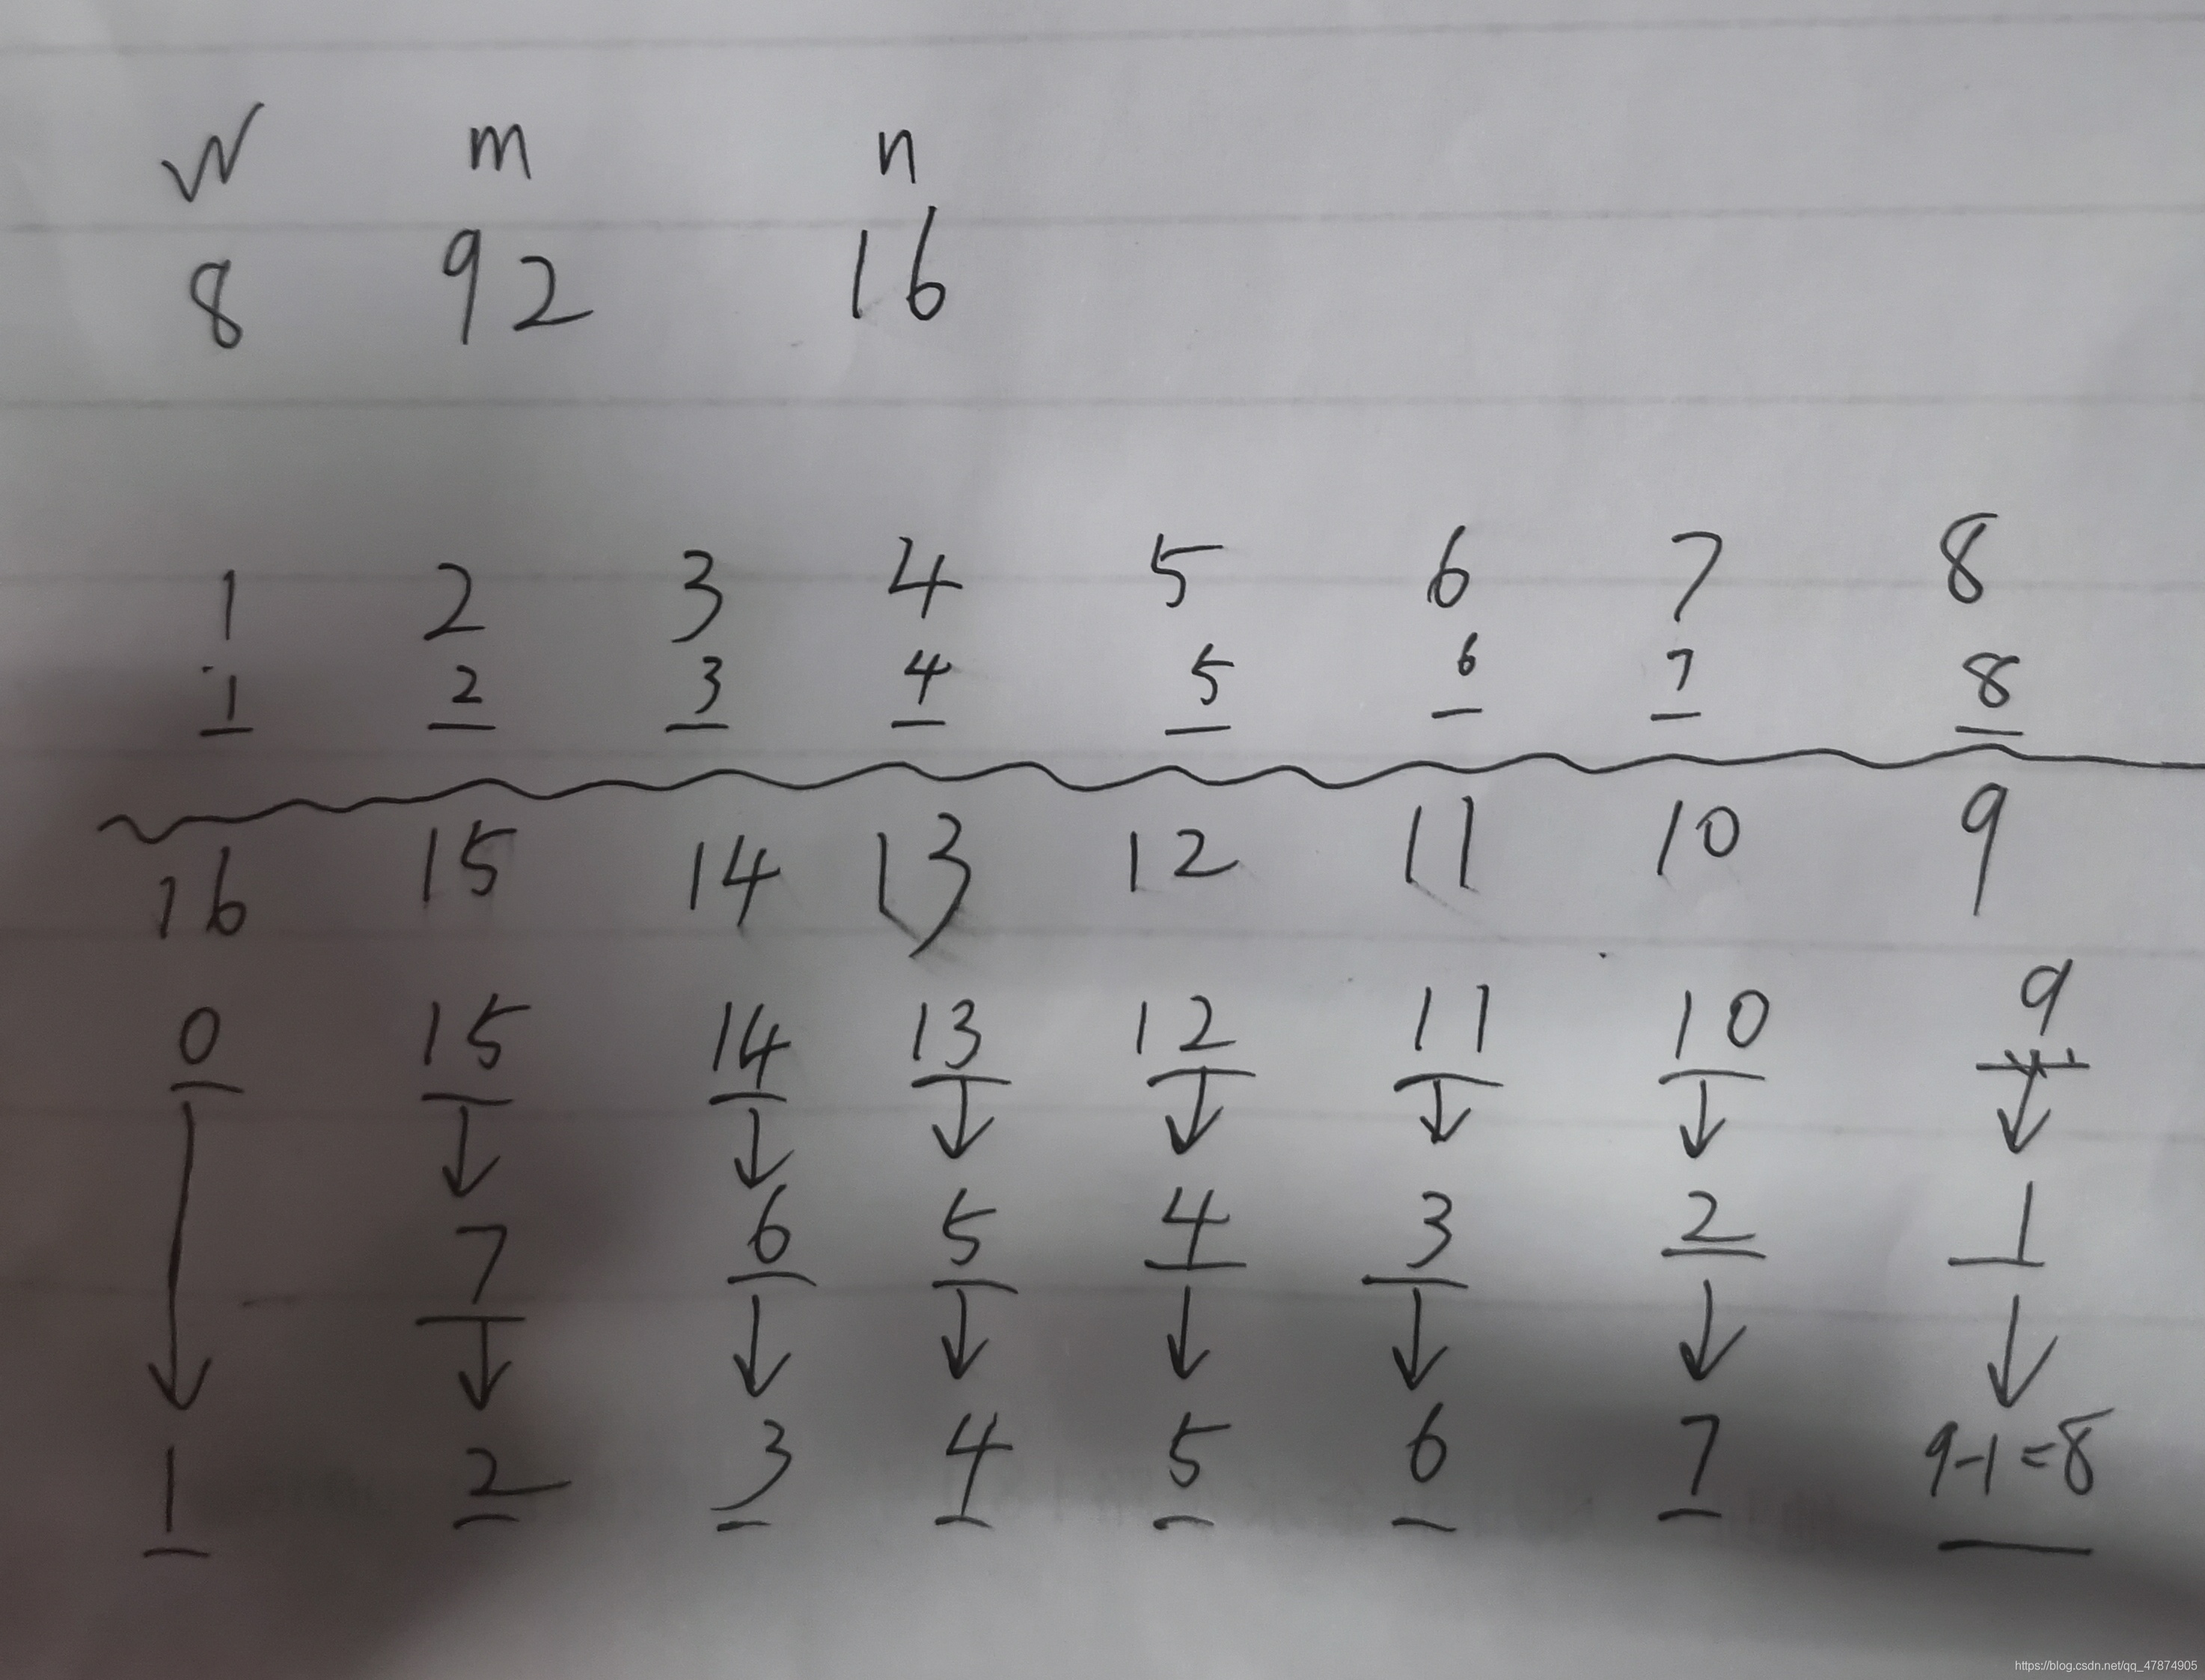 W m n
8 92 16
1 2 3 4 5 6 7 8
1 2 3 4 5 6 7 8
16 15 14 13 12 11 10 9
0 15 14 13 12 11 10 9
7 6 5 4 3 2 1
1 2 3 4 5 6 7 9-1=8
https://blog.csdn.net/qq_47874905